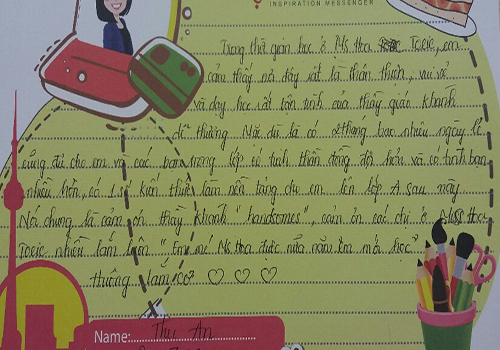 INSPIRATION MESSENGER
Trong thời gian học ở Ms Hoa Toeic, em
cảm thấy nơi đây rất là thân thiện, vui vẻ
và dạy học rất tận tình của thầy giáo Khanh
dễ thương. Mặc dù là có 2 tháng bao nhiêu ngày lễ
cũng đủ cho em và các bạn trong lớp có tinh thần đồng đội hơn và có tình bạn
nhiều hơn, có 1 số kiến thức làm nền tảng cho em lên lớp A sau này.
Nói chung là cảm ơn thầy Khanh "handsomes", cảm ơn các chị ở Miss Hoa
Toeic nhiều lắm luôn "Em mê Ms Hoa được nửa năm rồi mới học".
thương lắm cơ ♡ ♡ ♡
Name: Thu An